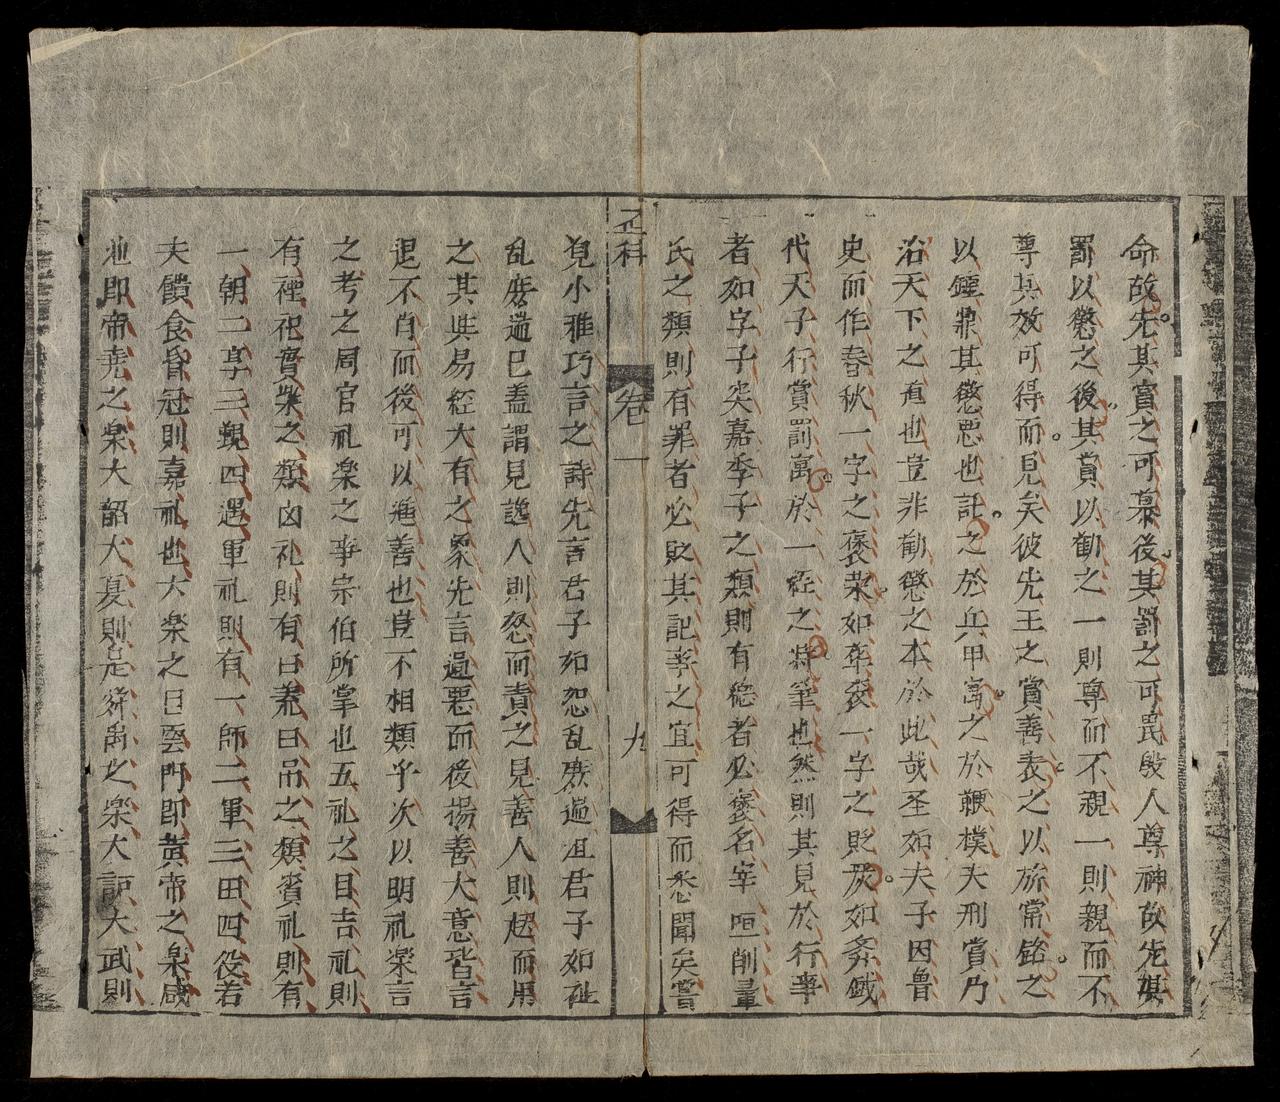 命故先其賞之可慕後其罰之可畏殷人尊神故先其
罰以懲之後其賞以勸之一則尊而不親一則親而不
尊其效可得而見矣彼先王之賞善表之以旂常銘之
以鍾鼎其懲悪也託之於兵甲寓之於鞭樸夫刑賞乃
治天下之道也豈非勸懲之本於此哉圣如夫子因魯
史而作春秋一字之褒荣如華衮一字之貶嚴如斧鉞
代天子行賞罰寓於一經之特筆也然則其見於行事
者如字子突嘉季子之類則有德者必褒名宰咺削暈
氏之類則有罪者必貶其記事之宜可得而悉聞矣嘗
正科 卷一 九
覓小雅巧言之詩先言君子如怒乱庶遄沮君子如祉
乱庶遄已蓋謂見讒人則怒而責之見善人則起而用
之其與易經大有之象先言遏悪而後揚善大意皆言
退不肖而後可以進善也豈不相類乎次以明礼楽言
之考之周官礼楽之事宗伯所掌也五礼之目吉礼則
有禋祀實柴之類凶礼則有曰荒曰吊之類賓礼則有
一朝二享三覲四遇軍礼則有一師二軍三田四役若
夫饋食昏冠則嘉礼也大楽之曰雲門即黃帝之楽咸
池即帝堯之楽大韶大夏則是舜禹之楽大護大武則